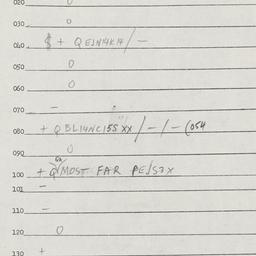 020 0
030 0
040 $ + QEIN14K14/-
050 0
060 0
070 -
080 + QBL14NC15SXX/-/-(054
090 0
100 + MOST FAR PE/S7X
101 -
110 -
120 0
130 +